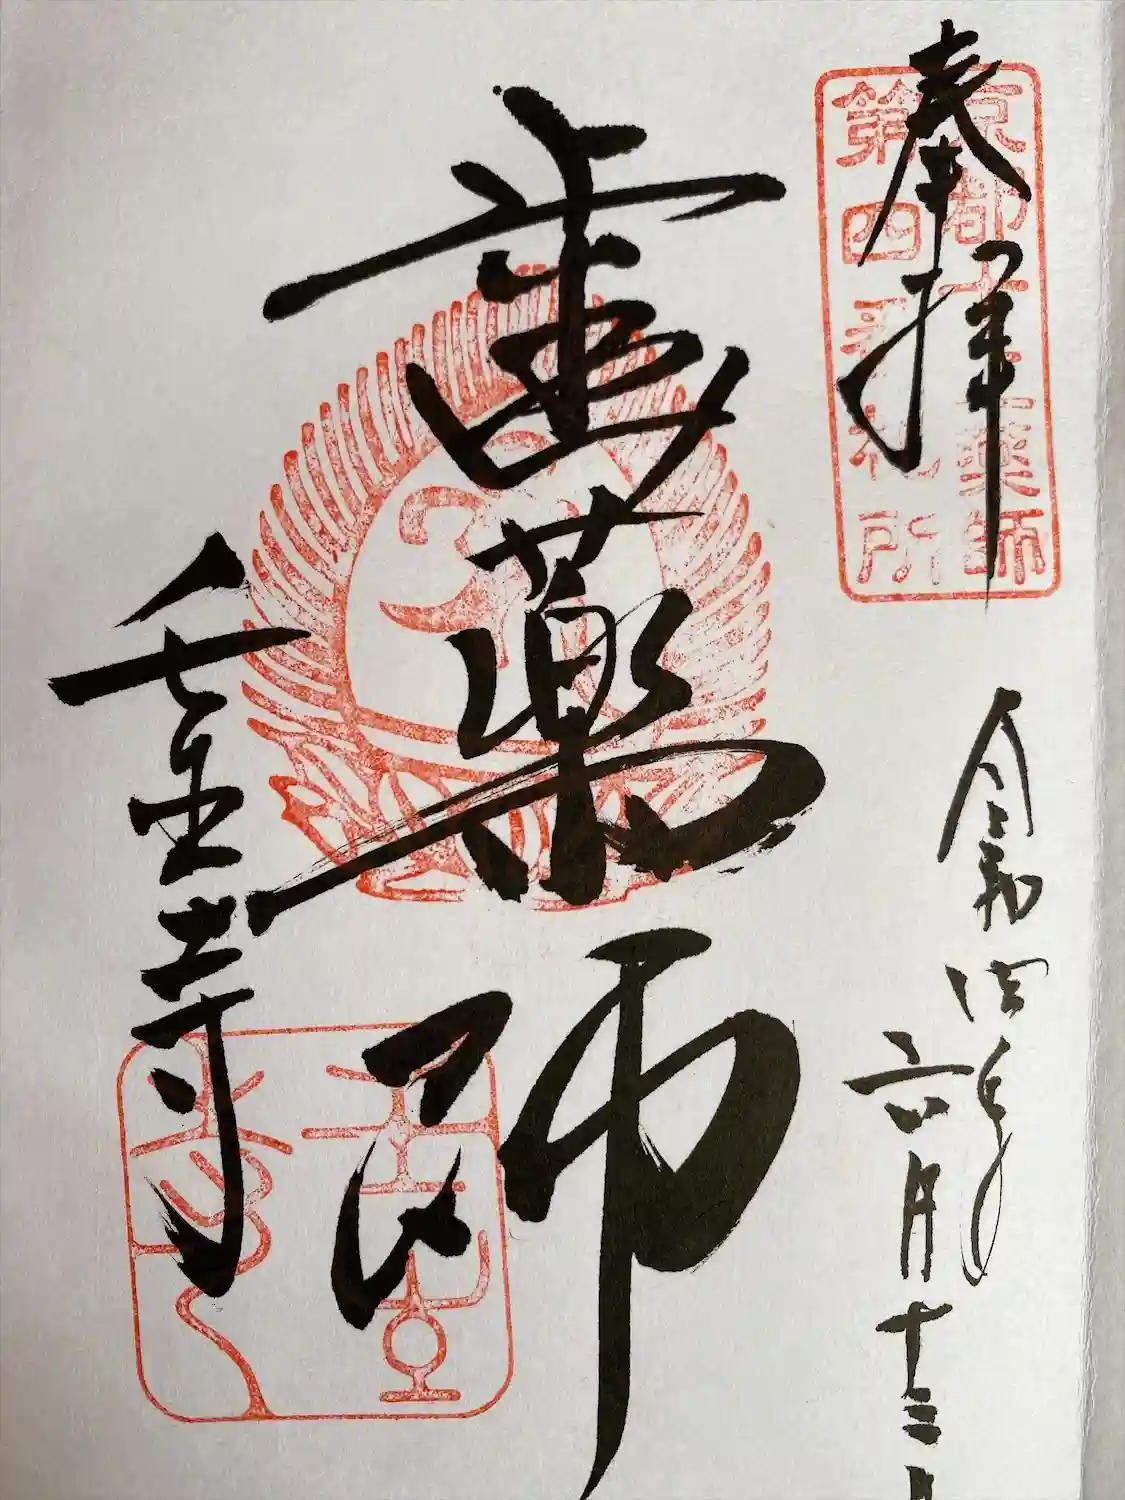 奉拝
京都十二薬師
第四番札所
令和四年
六月十三日
歯薬師
壬生寺